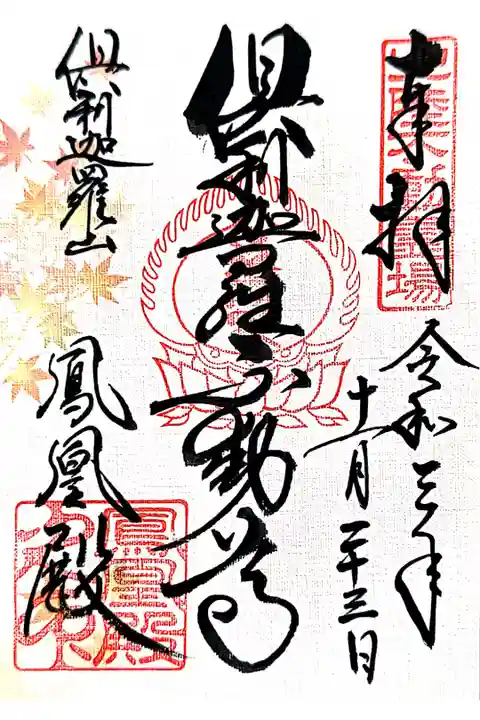 奉拝
令和三年
十一月二十三日
倶利迦羅不動尊
倶利迦羅山
鳳凰殿